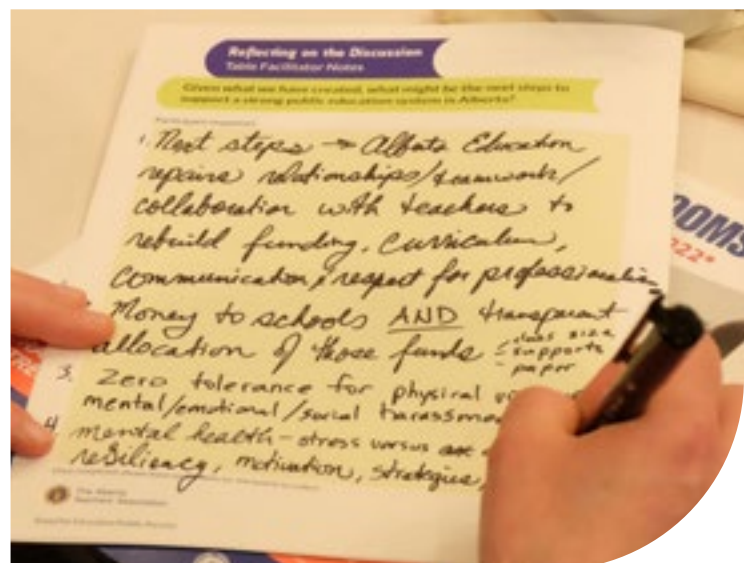 Reflecting on the Discussion
Table Facilitator Notes
Given what we have created, what might be the next steps to
support a strong public education system in Alberta?
1. Next steps → Alberta Education
repairs relationships/teamwork/
collaboration with teachers to
rebuild funding, curriculum,
communication, respect for professionalism
Money to schools AND transparent
allocation of those funds
- class size
- supports
- paper
3. Zero tolerance for physical
mental/emotional/social
4. mental health - stress versus
resiliency, motivation, strategies,
The Alberta
Teachers' Association
OOMS
022*